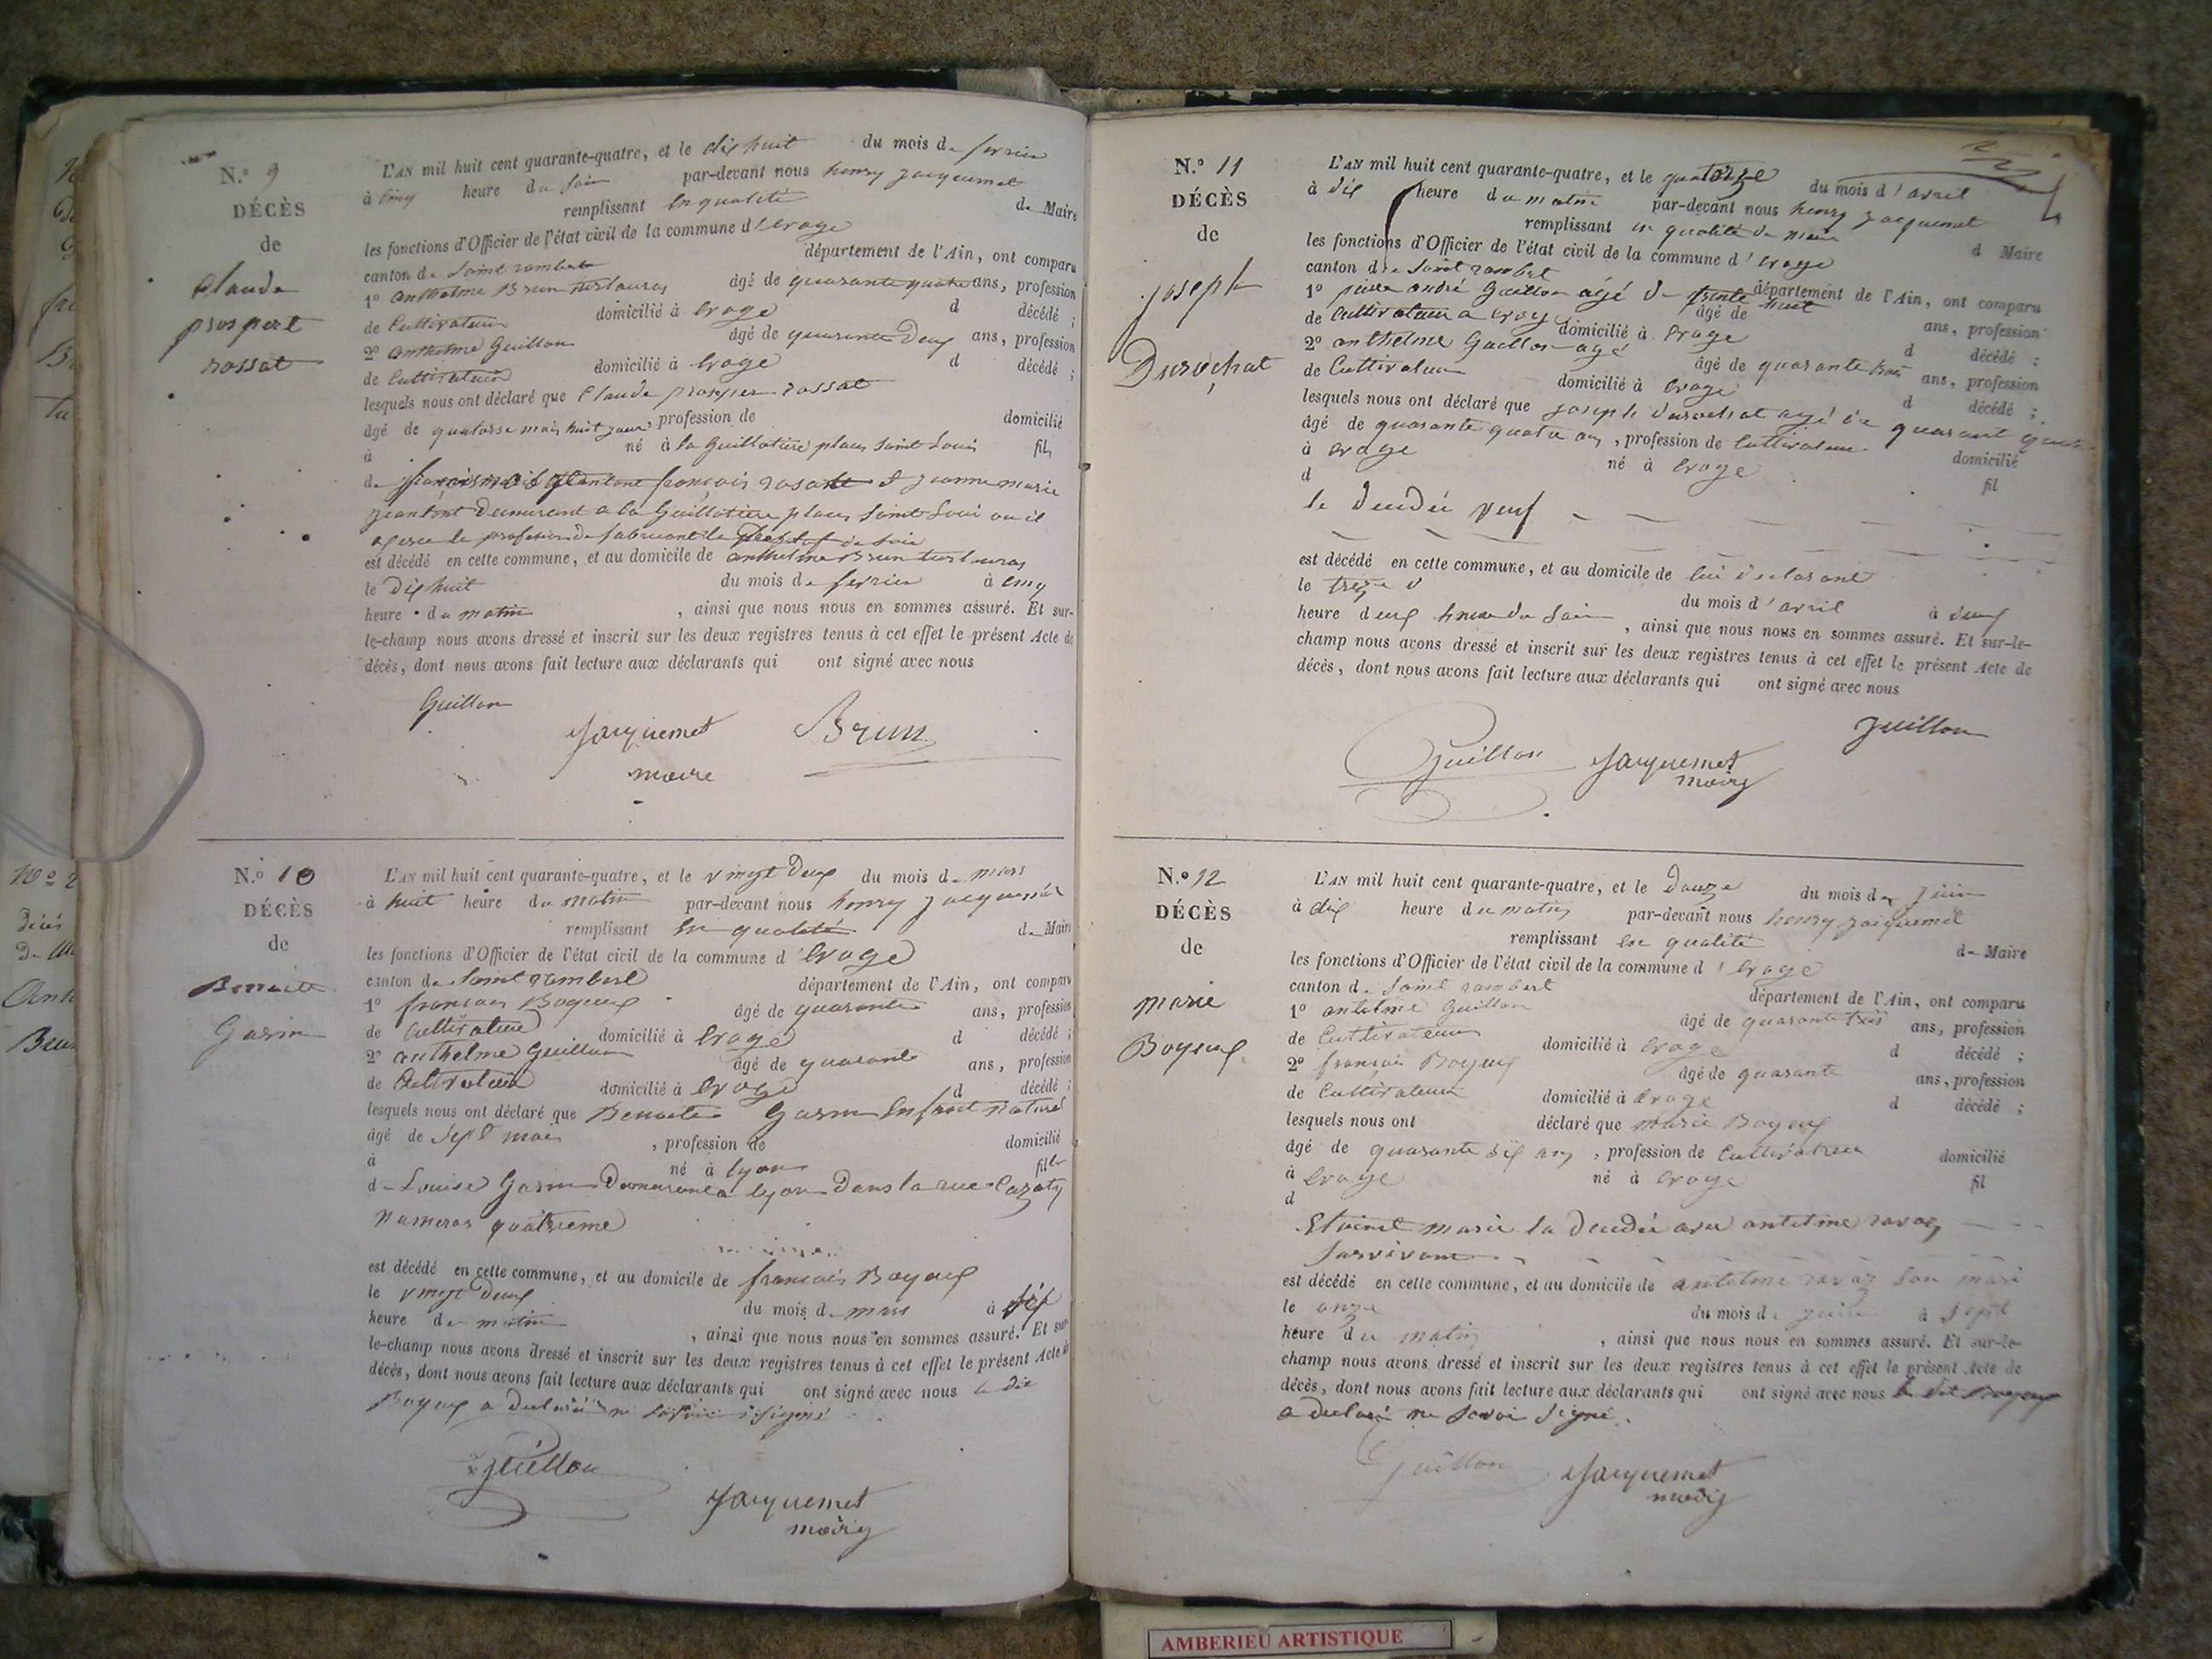 N.º 9
DÉCÈS
de
Claude
prospert
rossat
L'AN mil huit cent quarante-quatre, et le dix huit du mois de fevrier
à cinq heure du soir par-devant nous henry jacquemet
remplissant en qualité de Maire
les fonctions d'Officier de l'état civil de la commune d'evoge
canton de Saint rambert département de l'Ain, ont comparu
1º anthelme Brun âgé de quarante quatre ans, profession
de Cultivateur domicilié à Evoge d décédé ;
2º anthelme Guillon âgé de quarante Deux ans, profession
de Cultivateur domicilié à Evoge d décédé ;
lesquels nous ont déclaré que Claude prosper rossat
âgé de quatorse mois huit jour profession de domicilié
à né à la Guillotière place Saint Louis fils
de françois rosat et jeanne marie
Demeurant a la Guillotiere place Saint Loui ou il
exerce la profession de fabricant de soie
est décédé en cette commune, et au domicile de anthelme Brun
le Dix huit du mois de fevrier à cinq
heure du matin , ainsi que nous nous en sommes assuré. Et sur-
le-champ nous avons dressé et inscrit sur les deux registres tenus à cet effet le présent Acte de
décès, dont nous avons fait lecture aux déclarants qui ont signé avec nous
Guillon
Jacquemet Brun
maire
N.º 10
DÉCÈS
de
Benoite
Garin
L'AN mil huit cent quarante-quatre, et le vingt Deux du mois de mars
à huit heure du matin par-devant nous henry jacquemet
remplissant en qualité de Maire
les fonctions d'Officier de l'état civil de la commune d'Evoge
canton de Saint rambert département de l'Ain, ont comparu
1º francois Bogeux âgé de quarante ans, profession
de Cultivateur domicilié à Evoge d décédé ;
2º anthelme Guillon âgé de quarante ans, profession
de Cultivateur domicilié à Evoge d décédé ;
lesquels nous ont déclaré que Benoite Garin Enfant naturel
âgé de Sept mois , profession de domicilié
à né à lyon fille
de Louise Garin Demeurant a lyon Dans la rue
numeros quatrieme
est décédé en cette commune, et au domicile de francois Bogeux
le vingt Deux du mois de mars à six
heure du matin , ainsi que nous nous en sommes assuré. Et sur
le-champ nous avons dressé et inscrit sur les deux registres tenus à cet effet le présent Acte de
décès, dont nous avons fait lecture aux déclarants qui ont signé avec nous le dit
Bogeux a declaré ne savoir signé
Guillon
Jacquemet
maire
N.º 11
DÉCÈS
de
joseph
Durochat
L'AN mil huit cent quarante-quatre, et le quatorze du mois d'avril
à dix heure du matin par-devant nous henry jacquemet
remplissant en qualité de maire d Maire
les fonctions d'Officier de l'état civil de la commune d'evoge
canton de Saint rambert département de l'Ain, ont comparu
1º pierre andré Guillon agé de trente huit âgé de ans, profession
de Cultivateur a evoge domicilié à Evoge d décédé ;
2º anthelme Guillon agé âgé de quarante trois ans, profession
de Cultivateur domicilié à Evoge d décédé ;
lesquels nous ont déclaré que joseph durochat agé de quarant quatre
âgé de quarante quatre ans , profession de Cultivateur domicilié
à evoge né à Evoge fil
d
le Decdée veuf
est décédé en cette commune, et au domicile de lui declarant
le treze d du mois d'avril à deux
heure deux heure du Soir , ainsi que nous nous en sommes assuré. Et sur-le-
champ nous avons dressé et inscrit sur les deux registres tenus à cet effet le présent Acte de
décès, dont nous avons fait lecture aux déclarants qui ont signé avec nous
Guillon
Guillon Jacquemet
maire
N.º 12
DÉCÈS
de
marie
Bogeux
L'AN mil huit cent quarante-quatre, et le Douze du mois de juin
à dix heure du matin par-devant nous henry jacquemet
remplissant en qualité de Maire
les fonctions d'Officier de l'état civil de la commune d'Evoge
canton de Saint rambert département de l'Ain, ont comparu
1º antelme Guillon âgé de quarante trois ans, profession
de Cultivateur domicilié à Evoge d décédé ;
2º francois Bogeux âgé de quarante ans, profession
de Cultivateur domicilié à Evoge d décédé ;
lesquels nous ont déclaré que marie Bogeux
âgé de quarante six ans , profession de Cultivatrice domicilié
à Evoge né à Evoge fil
d
Etoient marié la Decdée avec antelme ravaz
Survivant
est décédé en cette commune, et au domicile de antelme ravaz Son mari
le onze du mois de juin à sept
heure du matin , ainsi que nous nous en sommes assuré. Et sur-le-
champ nous avons dressé et inscrit sur les deux registres tenus à cet effet le présent Acte de
décès, dont nous avons fait lecture aux déclarants qui ont signé avec nous le dit Bogeux
a declaré ne Savoir Signé.
Guillon Jacquemet
maire
AMBERIEU ARTISTIQUE